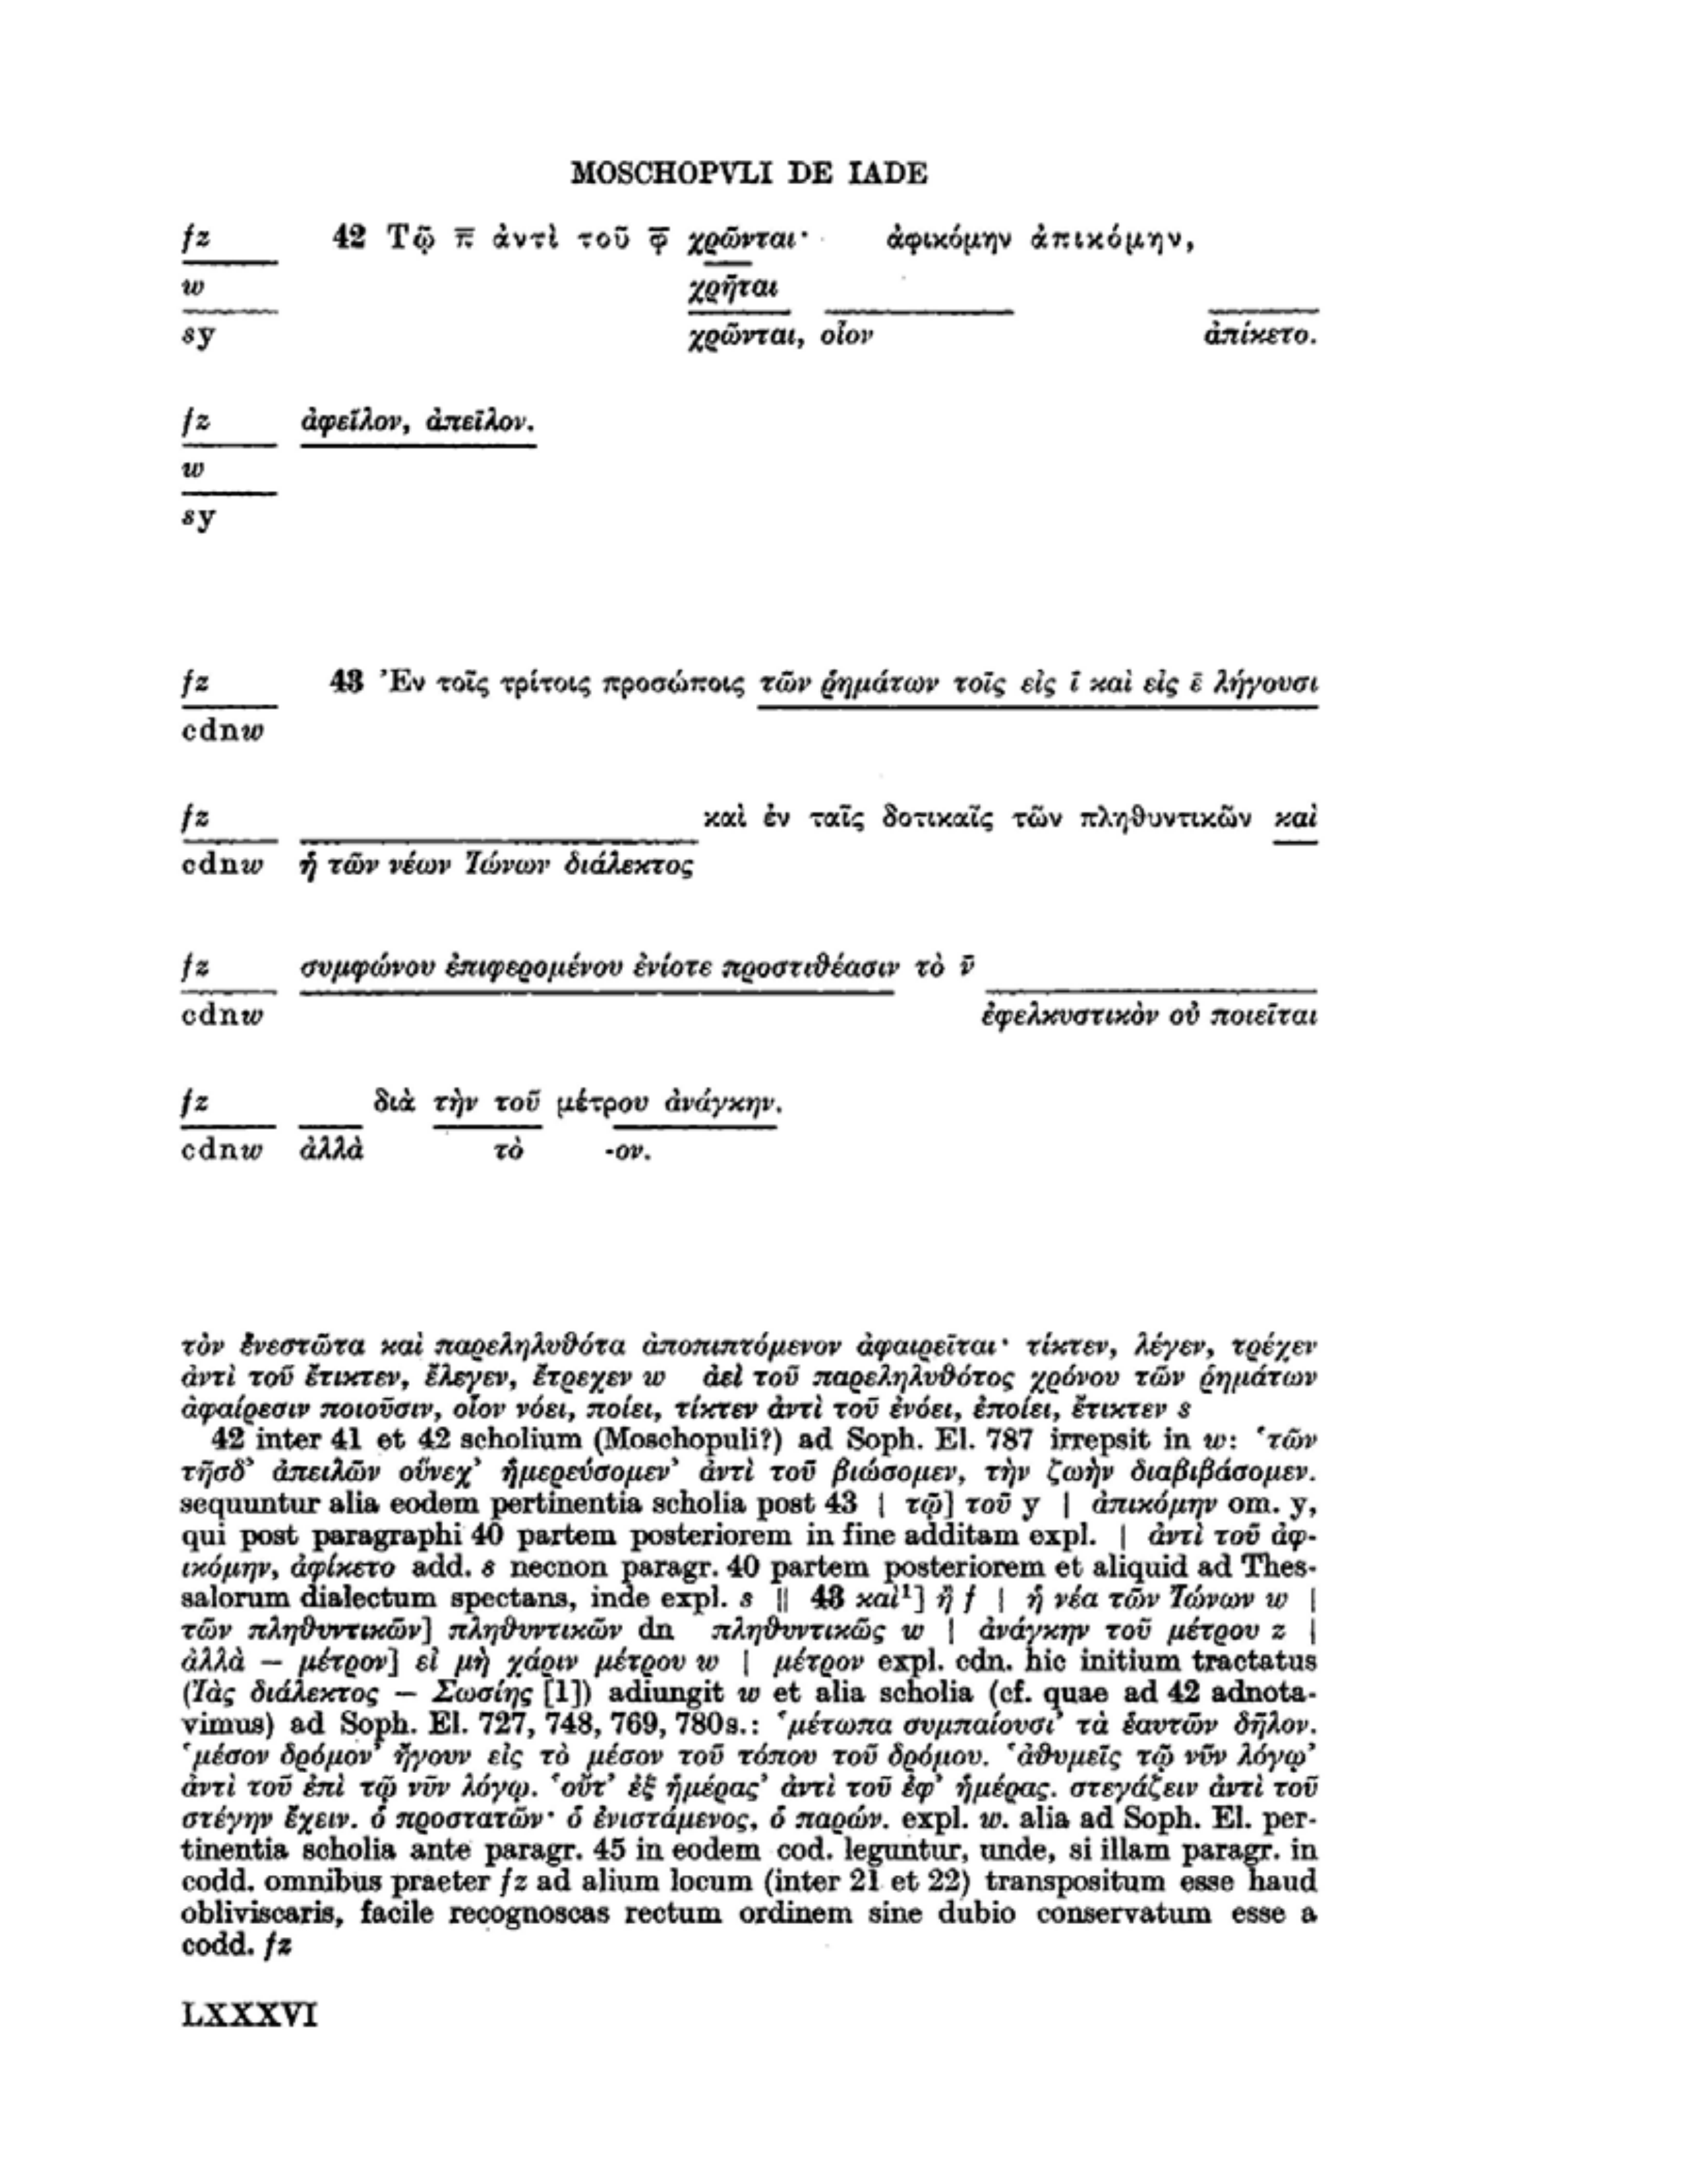 MOSCHOPVLI DE IADE
fz 42 Τῷ π̅ ἀντὶ τοῦ φ̅ χρῶνται· ἀφικόμην ἀπικόμην,
w χρῆται
sy χρῶνται, οἷον ἀπίκετο.
fz ἀφεῖλον, ἀπεῖλον.
w
sy
fz 43 Ἐν τοῖς τρίτοις προσώποις τῶν ῥημάτων τοῖς εἰς ι̅ καὶ εἰς ε̅ λήγουσι
cdnw
fz καὶ ἐν ταῖς δοτικαῖς τῶν πληθυντικῶν καὶ
cdnw ἡ τῶν νέων Ἰώνων διάλεκτος
fz συμφώνου ἐπιφερομένου ἐνίοτε προστιθέασιν τὸ ν̅
cdnw ἐφελκυστικὸν οὐ ποιεῖται
fz διὰ τὴν τοῦ μέτρου ἀνάγκην.
cdnw ἀλλὰ τὸ -ον.
τὸν ἐνεστῶτα καὶ παρεληλυθότα ἀποπιπτόμενον ἀφαιρεῖται· τίκτεν, λέγεν, τρέχεν
ἀντὶ τοῦ ἔτικτεν, ἔλεγεν, ἔτρεχεν w ἀεὶ τοῦ παρεληλυθότος χρόνου τῶν ῥημάτων
ἀφαίρεσιν ποιοῦσιν, οἷον νόει, ποίει, τίκτεν ἀντὶ τοῦ ἐνόει, ἐποίει, ἔτικτεν s
42 inter 41 et 42 scholium (Moschopuli?) ad Soph. El. 787 irrepsit in w: ‘τῶν
τῆσδ’ ἀπειλῶν οὕνεχ’ ἡμερεύσομεν’ ἀντὶ τοῦ βιώσομεν, τὴν ζωὴν διαβιβάσομεν.
sequuntur alia eodem pertinentia scholia post 43 | τῷ] τοῦ y | ἀπικόμην om. y,
qui post paragraphi 40 partem posteriorem in fine additam expl. | ἀντὶ τοῦ ἀφ-
ικόμην, ἀφίκετο add. s necnon paragr. 40 partem posteriorem et aliquid ad Thes-
salorum dialectum spectans, inde expl. s || 43 καὶ¹] ἢ f | ἡ νέα τῶν Ἰώνων w |
τῶν πληθυντικῶν] πληθυντικῶν dn πληθυντικῶς w | ἀνάγκην τοῦ μέτρου z |
ἀλλὰ – μέτρον] εἰ μὴ χάριν μέτρου w | μέτρον expl. cdn. hic initium tractatus
(Ἰὰς διάλεκτος – Σωσίης [1]) adiungit w et alia scholia (cf. quae ad 42 adnota-
vimus) ad Soph. El. 727, 748, 769, 780s.: ‘μέτωπα συμπαίουσι’ τὰ ἑαυτῶν δῆλον.
‘μέσον δρόμον’ ἤγουν εἰς τὸ μέσον τοῦ τόπου τοῦ δρόμου. ‘ἀθυμεῖς τῷ νῦν λόγῳ’
ἀντὶ τοῦ ἐπὶ τῷ νῦν λόγῳ. ‘οὔτ’ ἐξ ἡμέρας’ ἀντὶ τοῦ ἐφ’ ἡμέρας. στεγάζειν ἀντὶ τοῦ
στέγην ἔχειν. ὁ προστατῶν· ὁ ἐνιστάμενος, ὁ παρών. expl. w. alia ad Soph. El. per-
tinentia scholia ante paragr. 45 in eodem cod. leguntur, unde, si illam paragr. in
codd. omnibus praeter fz ad alium locum (inter 21 et 22) transpositum esse haud
obliviscaris, facile recognoscas rectum ordinem sine dubio conservatum esse a
codd. fz
LXXXVI